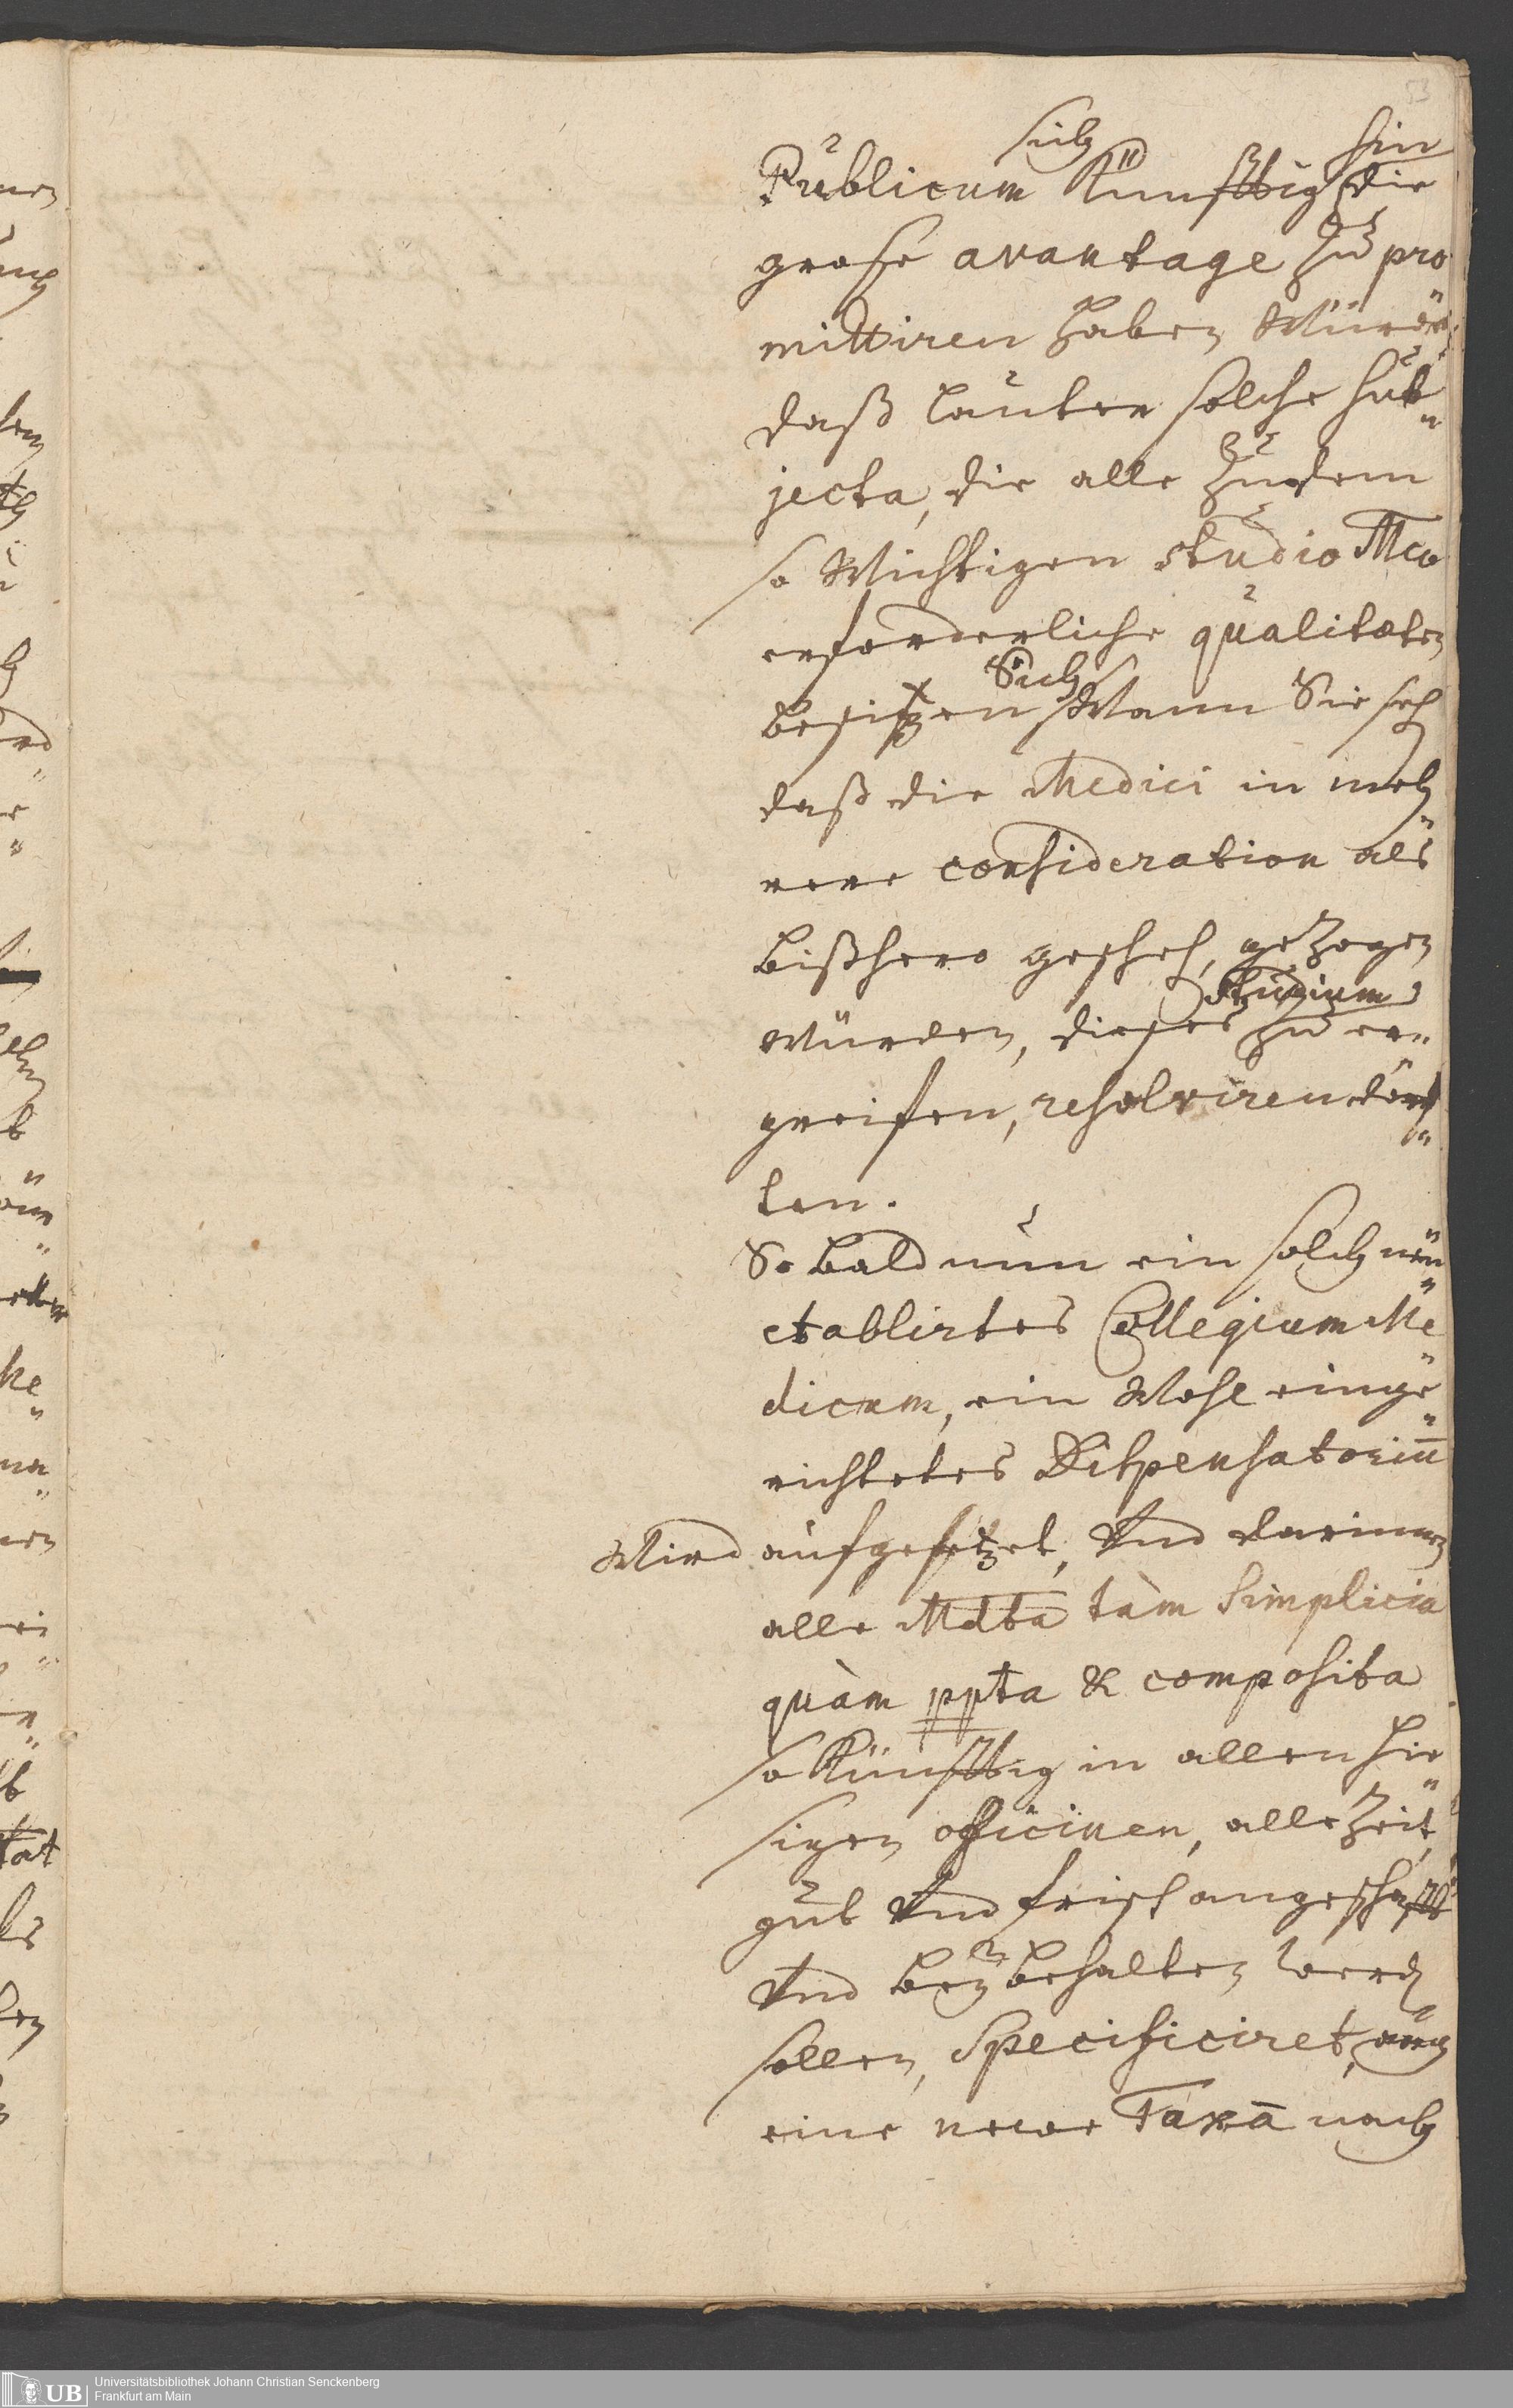 53
sich hin
Publicum Künfftig die
große avantage zu pro
mittiren haben Würde
daß lauter solche Sub
jecta, die alle zu dem
so Wichtigen studio Med
erforderliche qualitaten
besitzen Sich Wann Sie seh
daß die Medici in meh
rere consideration als
bißhero gescheh, gezogen
würden, dieses Studium zu er
greifen, resolviren dörf
ten.
So bald nun ein solch neu
etablirtes Collegium Me
dicum, ein Wohl einge
richtetes Dispensatorium
Wird aufgesetzet, Und darinnen
alle Mdta tàm Simplicia
quàm ppta & composita
so Künfftig in allen hie
sigen officinen, alle Zeit
gut Und frisch angeschafft
Und bey behalten werd
sollen, Specificiret, auch
eine neue Taxa nach
UB Universitätsbibliothek Johann Christian Senckenberg
Frankfurt am Main